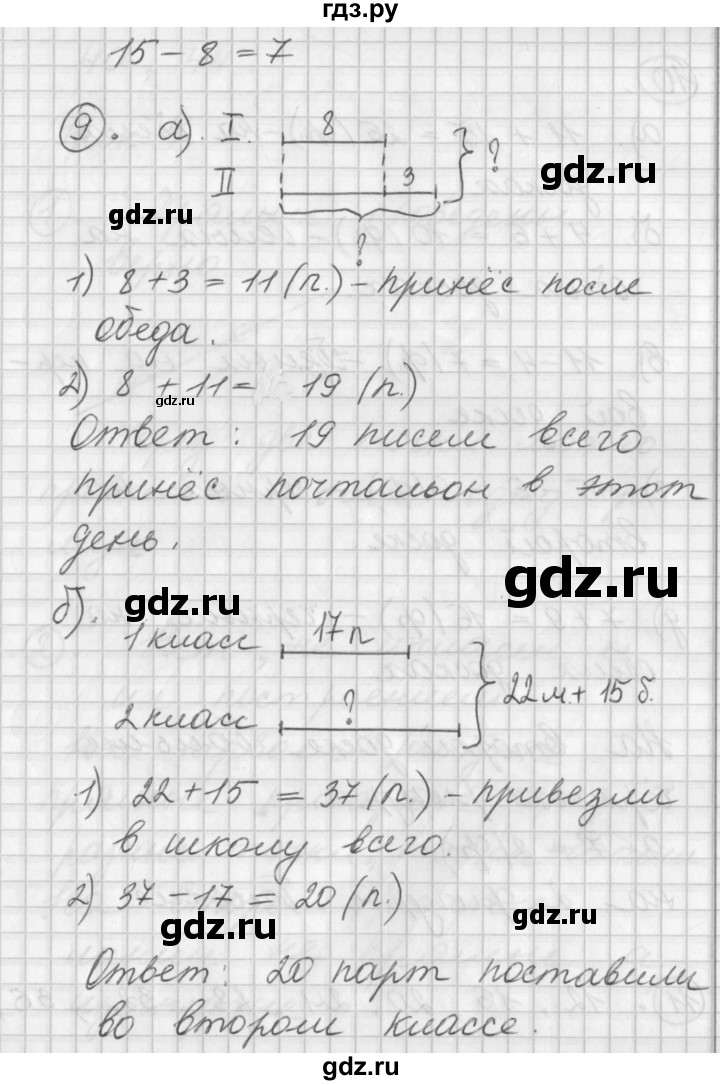 гдз.ру
15 - 8 = 7
9. а). I. 8
?
II 3
gdz.ru
gdz.ru
?
1) 8 + 3 = 11 (п.) - принёс после
обеда.
gdz.ru
2) 8 + 11 = 19 (п.)
Ответ: 19 писем всего
принёс почтальон в этот
день.
gdz.ru
б).
gdz.ru
1 класс 17 п
22 м. + 15 б.
2 класс ?
1) 22 + 15 = 37 (п.) - привезли
в школу всего.
2) 37 - 17 = 20 (п.)
gdz.ru
gdz.ru
Ответ: 20 парт поставили
во втором классе.
gdz.ru